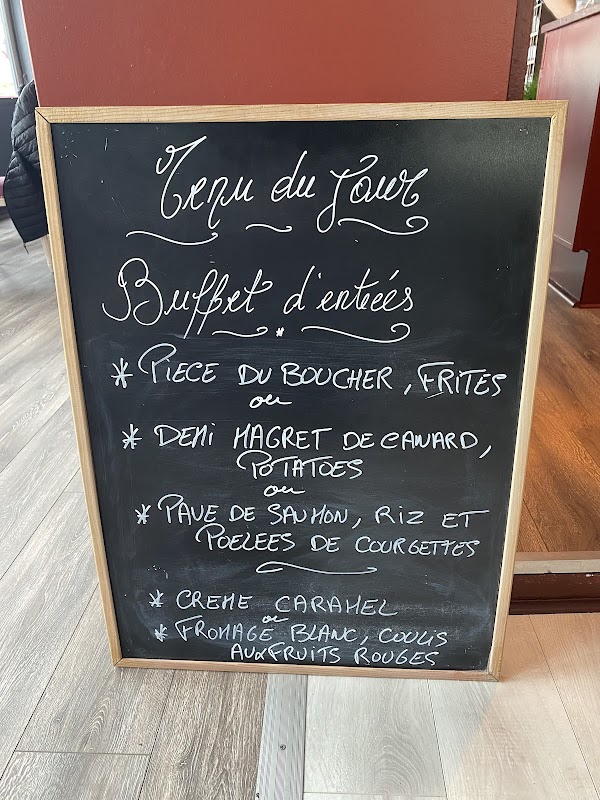 Menu du Jour
Buffet d'entrées
* PIECE DU BOUCHER, FRITES
ou
* DEMI MAGRET DE CANARD,
POTATOES
ou
* PAVE DE SAUMON, RIZ ET
POELEES DE COURGETTES
* CREME CARAMEL
ou
* FROMAGE BLANC, COULIS
AUX FRUITS ROUGES